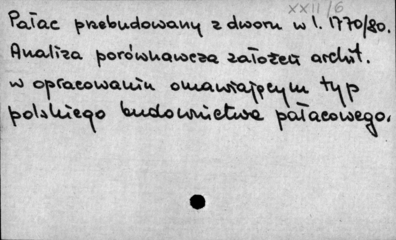 XXII/6
Pałac przebudowany z dworu w l. 1770/80.
Analiza porównawcza założeń archit.
w opracowaniu omawiającym typ
polskiego budownictwa pałacowego.